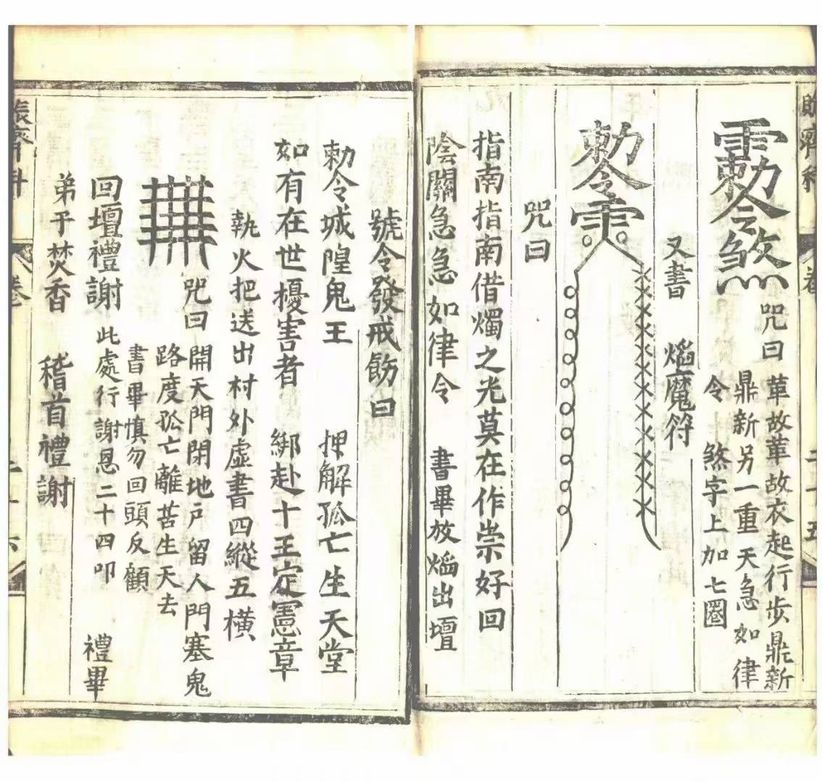 勅令煞
咒曰 革故革故衣起行步鼎新
鼎新另一重天急如律
令 煞字上加七圈
又書 熖魔符
勅令
咒曰
指南指南借燭之光莫在作崇好回
陰關急急如律令 書畢放熖出壇
號令發戒飭曰
勅令城隍鬼王 押解孤亡生天堂
如有在世擾害者 綁赴十王定憲章
執火把送出村外虛書四縱五橫
咒曰 開天門閉地戶留人門塞鬼
路度孤亡離苦生天去
書畢慎勿回頭反顧
回壇禮謝 此處行謝恩二十四叩 禮畢
弟子焚香 稽首禮謝